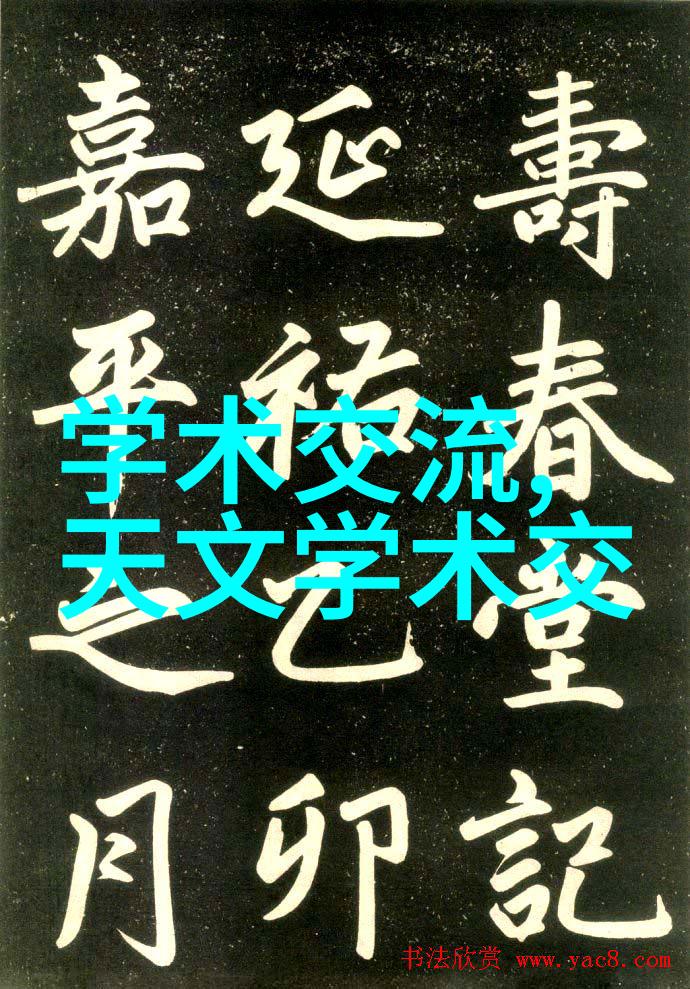 壽春堂記
延祐乙卯
嘉平之月
学术交流,
天文学术交
书法欣赏 www.yac8.com